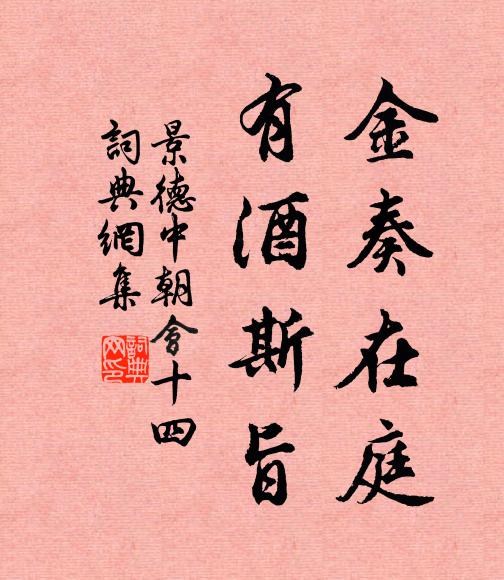 金奏在庭
有酒斯旨
景德中朝會十四
詞典網集
詞典網印